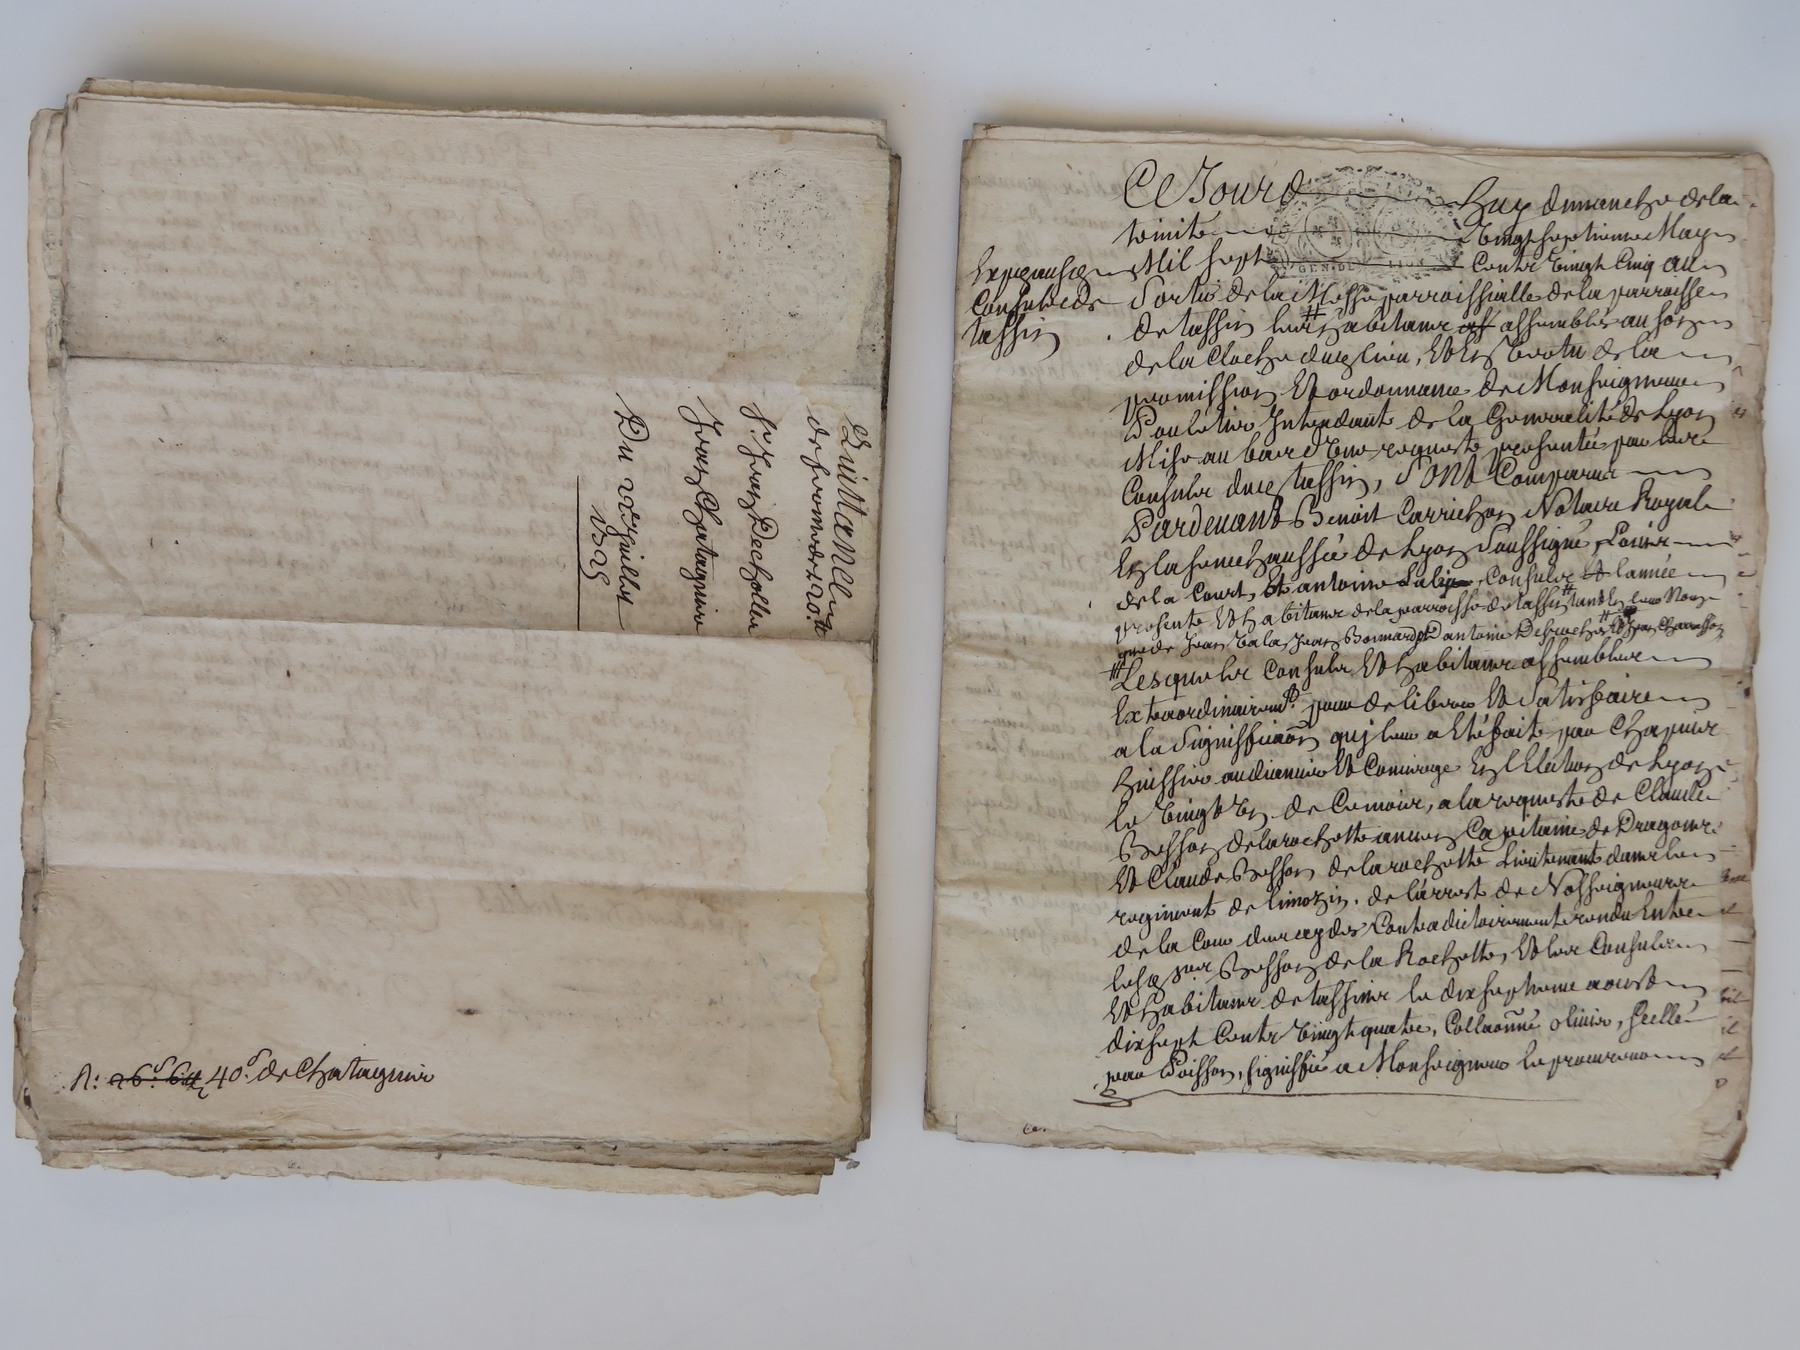 Quittance
de sommes 220.tt
Sr. Jean Decholla
Jean Chatagnier
Du 22e juillet
1725
R: 26.s 6d 40.s de Chatagnier
Ce Jourd huy dimanche de la
trinité vingt septieme May
Mil sept Cents vingt Cinq au
Sortir de la Messe parroissialle de la parroisse
de tassin les habitans assemblés au son
de la Cloche dud lieu, Et En vertu de la
permission Et ordonnance de Monseigneur
Pouletier Intendant de la Generalité de Lyon
Mise au bas d'une requeste presentée par les
Consuls dud tassin, Sont Comparus
Pardevant Benoit Carrichon Notaire Royal
En la senechaussée de Lyon Soussigné, Louis
de la Court, Et antoine Consuls l'année
presente Et habitans de la parroisse de tassin tant En leur Nom
que de Jean Jean Bonnard antoine
Lesquels Consuls Et habitans assemblés
Extraordinairemt. pour deliberer Et Satisfaire
a la Signiffica͠on quj leur a Eté faite par Chapuis
huissier audiancier Et En l'Election de Lyon
le vingt Un de Ce mois, a la requeste de Claude
Besson de la rochette ancien Capitaine de Dragons
Et Claude Besson de la rochette Lieutenant dans le
regiment de limozin, de l'arrest de Nosseigneurs
de la Cour des aydes Contradictoirement rendu Entre
lesd srs Besson de la Rochette, Et les Consuls
Et habitans de tassin le dix septieme aoust
dix sept Cents vingt quatre, Colla͠onné olivier, scellé
par Poisson, signiffié a Monseigneur le procureur
Expedition
Consuls de
tassin